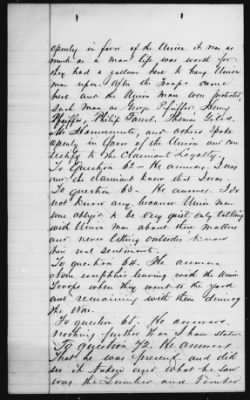 openly in favor of the Union it was as
much as a mans life was worth for
they had a gallows here to hang Union
man upon. After the Troops came
here and the Union Men were protected
such Man as George Pfeiffer Henry
Pfeiffer, Philip Faust, Thomas
Mr. and others Spoke
openly in favor of the Union and can
testify to the Claimant Loyalty.
To Question 62. He answers. I was
our claimant knew that I was.
To question 63. He answers. I do
not know any because Union man
were obliged to be very quiet only talking
with Union man about these matters
and never letting outsiders know
their real sentiments.
To question 64. He answers
None complied leaving with the Union
Troops when they went to the
and remaining with them during
the War.
To question 65. He answers,
nothing further than I have stated
To question 72. He answers
That he was present and did
see it taken and what he saw
was the Lumber and Timber